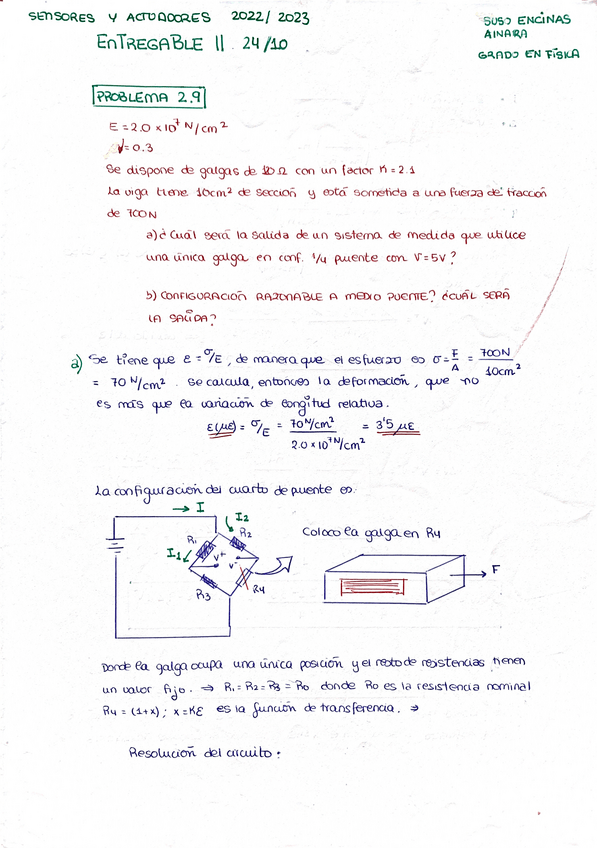 SENSORES Y ACTUADORES 2022/2023
SUSO ENCINAS
AINARA
GRADO EN FÍSICA
ENTREGABLE II. 24/10
PROBLEMA 2.9
E = 2.0 x 10⁷ N/cm²
ν = 0.3
Se dispone de galgas de 120 Ω con un factor K = 2.1
La viga tiene 10cm² de sección y está sometida a una fuerza de tracción
de 700N
a) ¿Cuál será la salida de un sistema de medida que utilice
una única galga en conf. 1/4 puente con V = 5V?
b) CONFIGURACIÓN RAZONABLE A MEDIO PUENTE? ¿CUÁL SERÁ
LA SALIDA?
a) Se tiene que ε = σ/E, de manera que el esfuerzo es σ = F/A = 700N/10cm²
= 70 N/cm². Se calcula, entonces la deformación, que no
es más que la variación de longitud relativa.
ε(με) = σ/E = 70 N/cm² / 2.0 x 10⁷ N/cm² = 3'5 με
La configuración del cuarto de puente es:
I
I2
R1
R2
Coloco la galga en R4
I1
V+
V-
R3
R4
F
Donde la galga ocupa una única posición y el resto de resistencias tienen
un valor fijo. ⇒ R1 = R2 = R3 = R0 donde R0 es la resistencia nominal
R4 = (1+x); x = Kε es la función de transferencia. ⇒
Resolución del circuito: